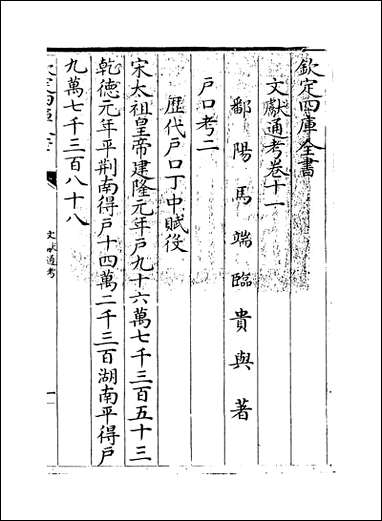 欽定四庫全書
文獻通考卷十一
鄱陽馬端臨貴與著
戶口考二
歷代戶口丁中賦役
宋太祖皇帝建隆元年戶九十六萬七千三百五十三
乾徳元年平荆南得戶十四萬二千三百湖南平得戶
九萬七千三百八十八
文獻通考
一